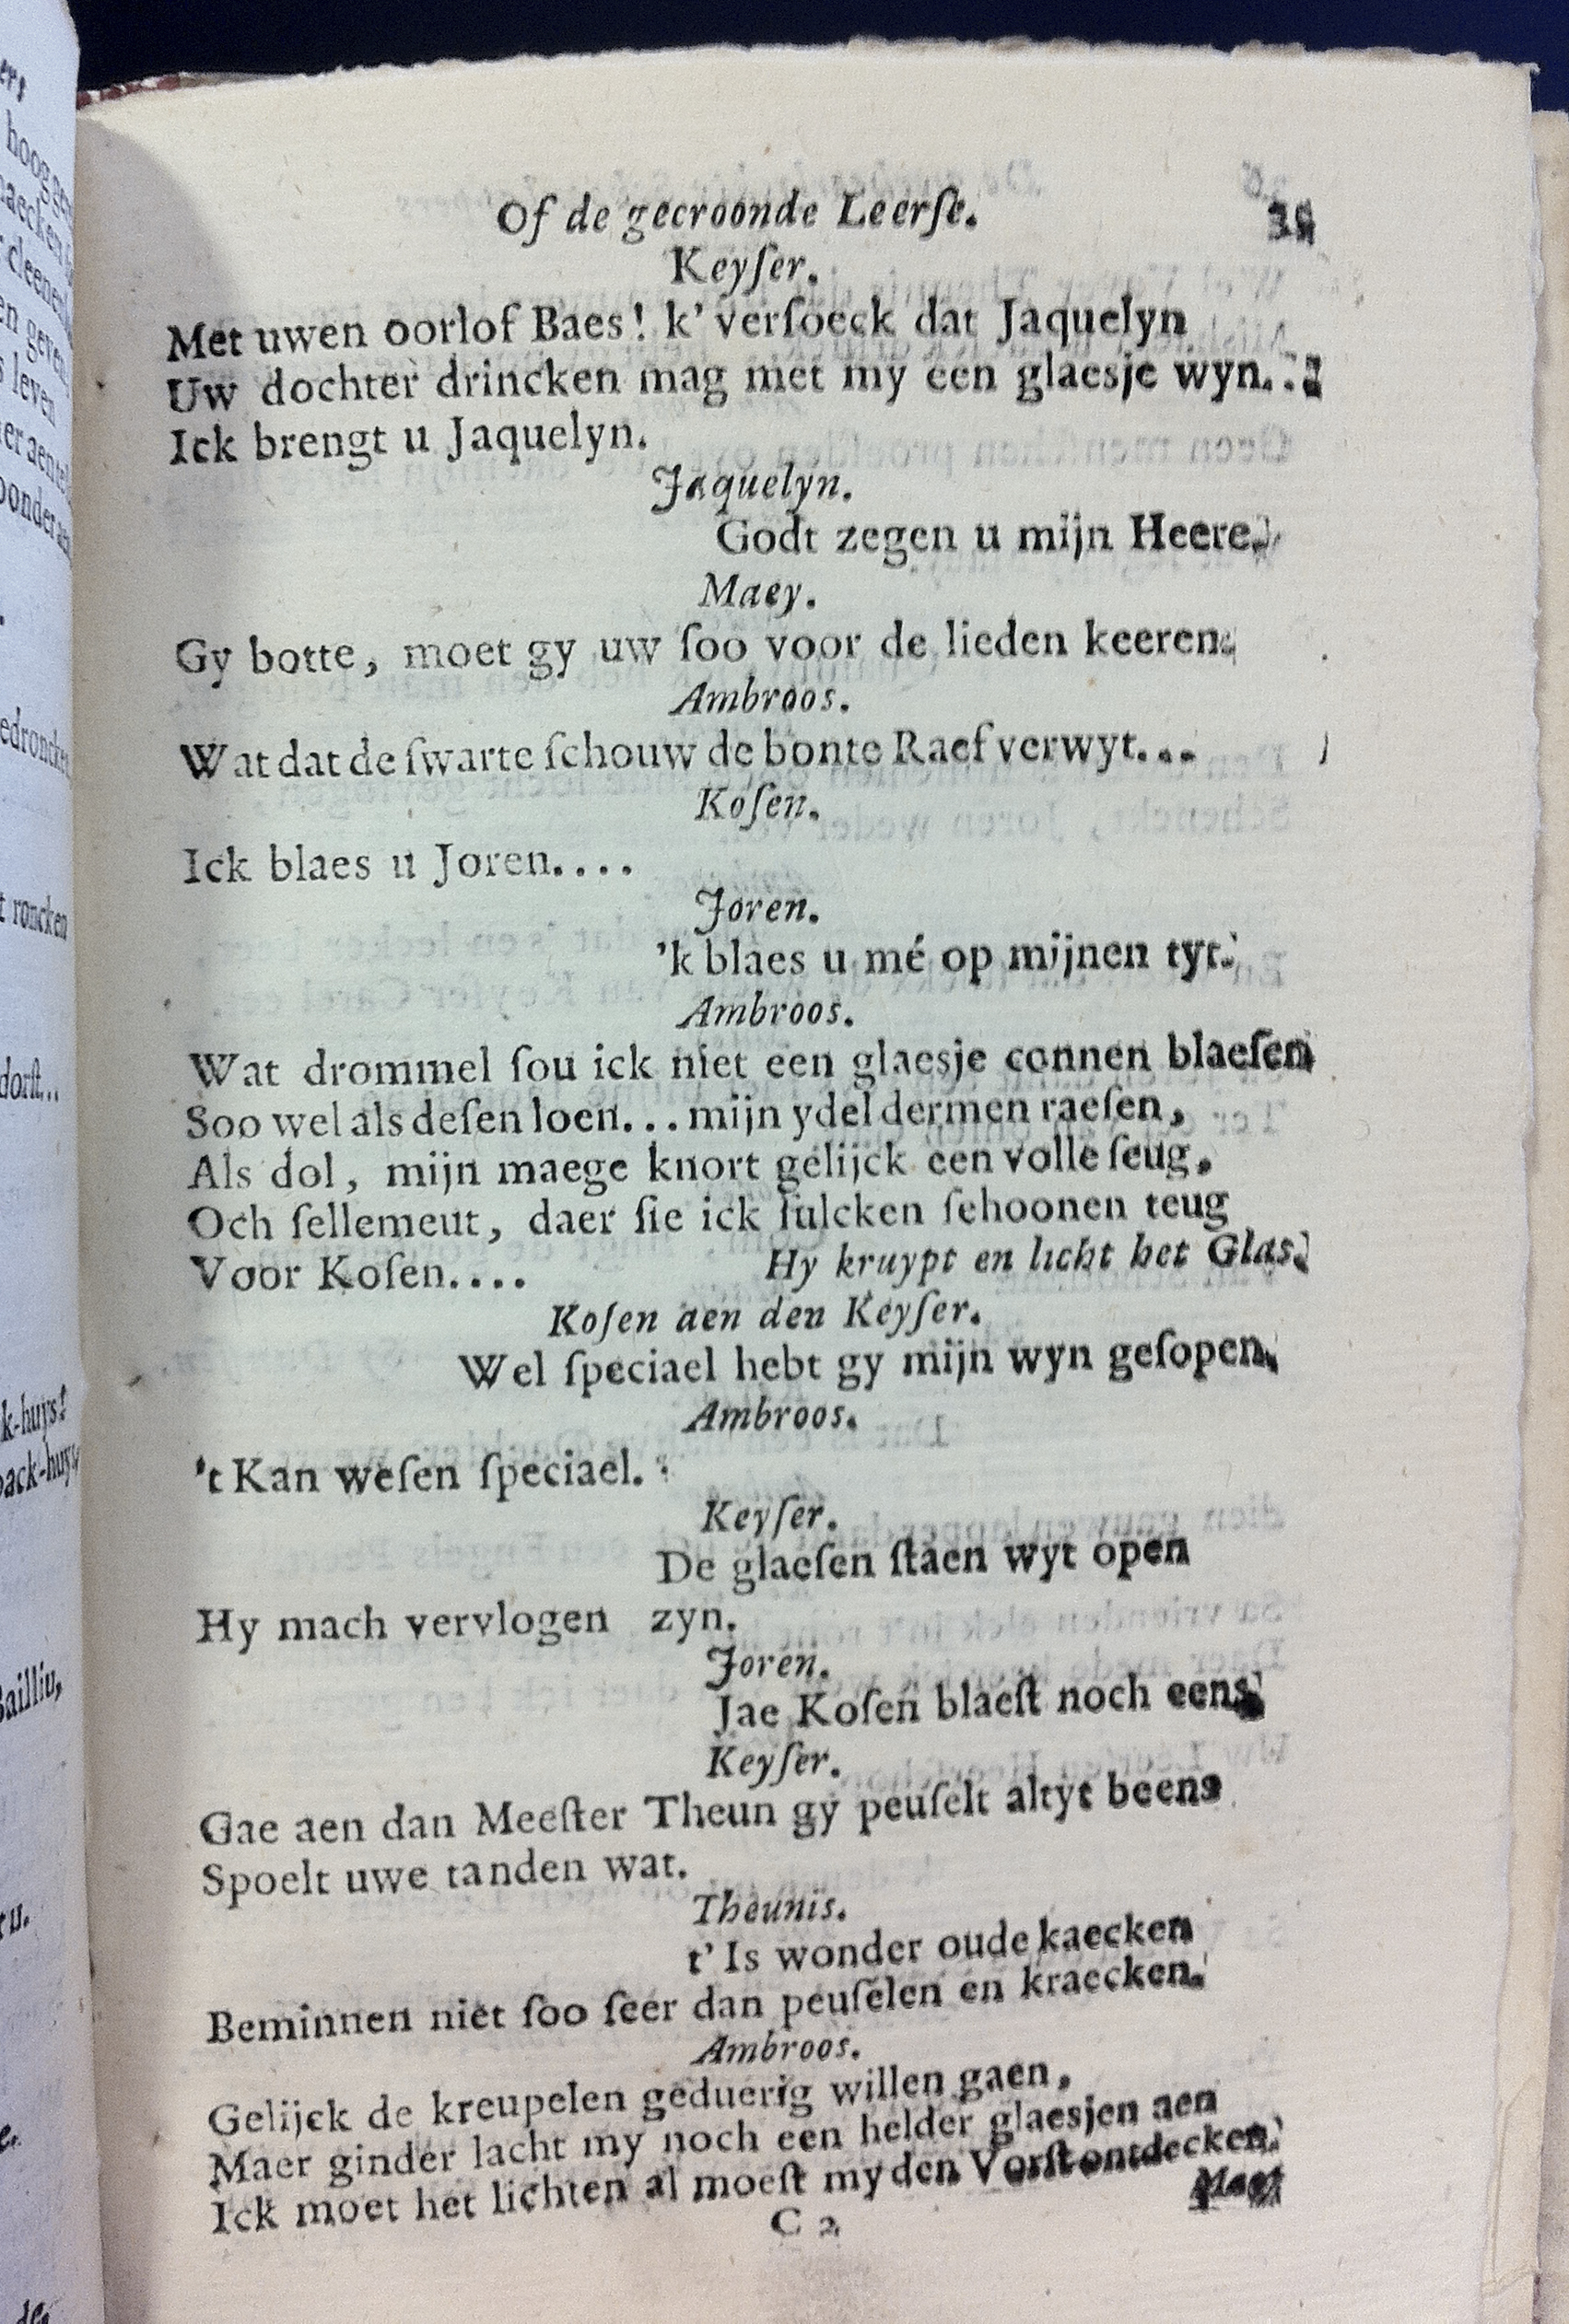 Of de gecroonde Leerſe.
Keyſer.
Met uwen oorlof Baes! k' verſoeck dat Jaquelyn
Uw dochter drincken mag met my een glaesje wyn.
Ick brengt u Jaquelyn.
Jaquelyn.
Godt zegen u mijn Heere.
Maey.
Gy botte, moet gy uw ſoo voor de lieden keeren.
Ambroos.
Wat dat de ſwarte ſchouw de bonte Raef verwyt...
Koſen.
Ick blaes u Joren....
Joren.
'k blaes u mé op mijnen tyt.
Ambroos.
Wat drommel ſou ick niet een glaesje connen blaeſen
Soo wel als deſen loen... mijn ydel dermen raeſen,
Als dol, mijn maege knort gelijck een volle ſeug,
Och ſellemeut, daer ſie ick ſulcken ſehoonen teug
Voor Koſen.... Hy kruypt en licht het Glas.
Koſen aen den Keyſer.
Wel ſpeciael hebt gy mijn wyn geſopen.
Ambroos.
't Kan weſen ſpeciael.
Keyſer.
De glaeſen ſtaen wyt open
Hy mach vervlogen zyn.
Joren.
Jae Koſen blaeſt noch eens
Keyſer.
Gae aen dan Meeſter Theun gy peuſelt altyt beens
Spoelt uwe tanden wat.
Theunis.
t' Is wonder oude kaecken
Beminnen niet ſoo ſeer dan peuſelen en kraecken.
Ambroos.
Gelijck de kreupelen geduerig willen gaen,
Maer ginder lacht my noch een helder glaesjen aen
Ick moet het lichten al moeſt my den Vorſt ontdecken.
C 2
Maey
hoog
cleenen
en geven
leven
edroncken
t roncken
dorſt..
k-huys?
back-huys
Bailliu,